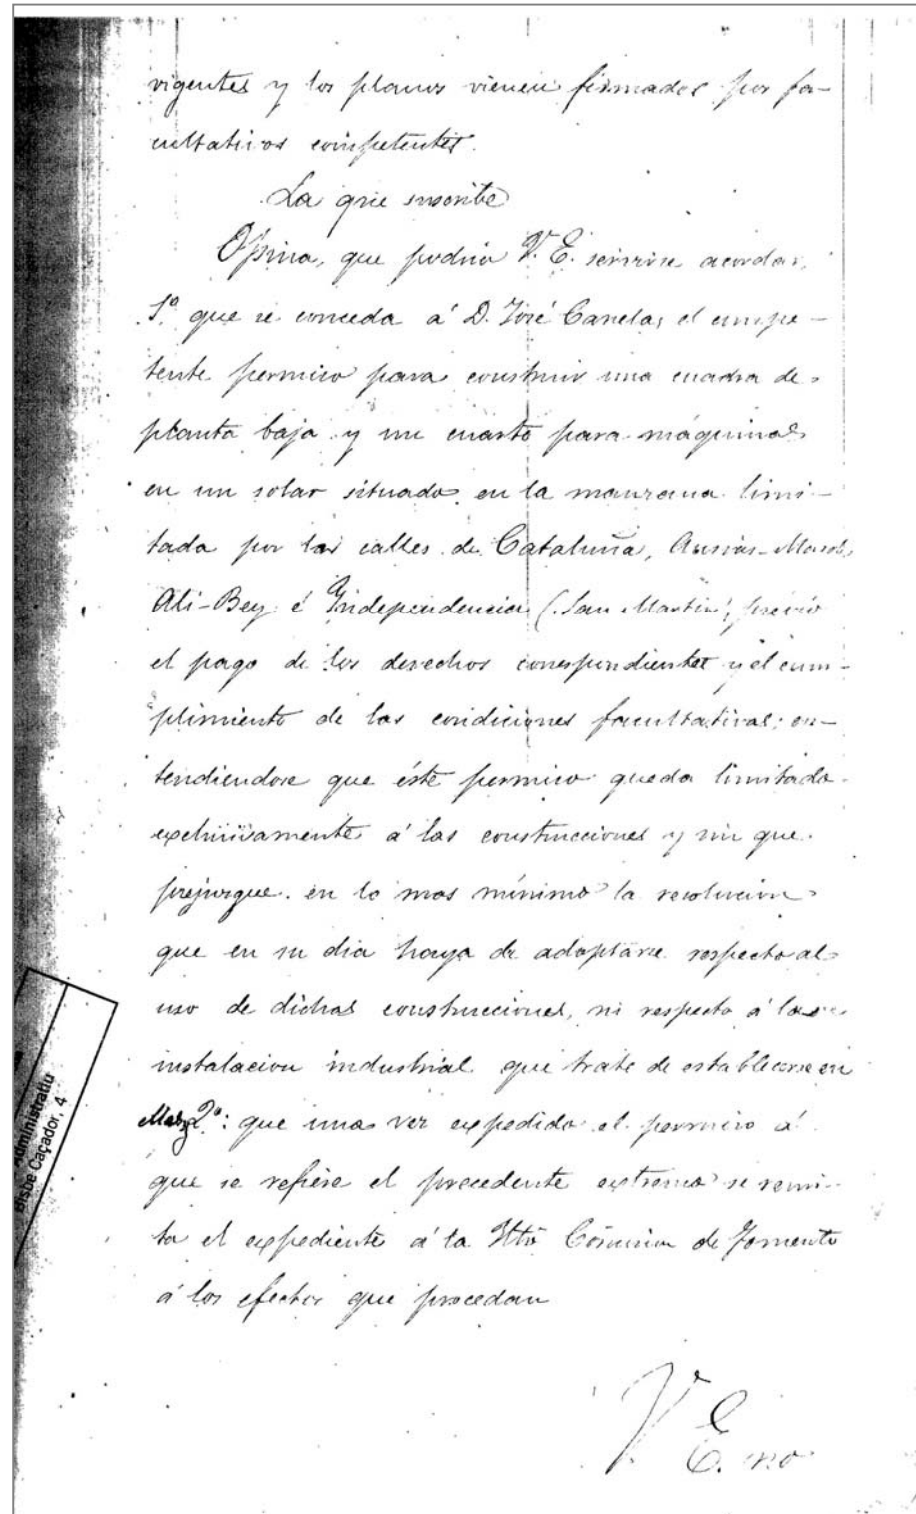 vigentes y los planos vienen firmados por fa-
cultativos competentes.
La que suscribe
Opina, que podria V. E. servirse acordar,
1º que se conceda á D. José Canela, el compe-
tente permiso para construir una cuadra de
planta baja y un cuarto para máquinas
en un solar situado en la manzana limi-
tada por las calles de Cataluña, Ausias-March,
Ali-Bey é Independencia (San Martin), previo
el pago de los derechos correspondientes y el cum-
plimiento de las condiciones facultativas; en-
tendiendose que éste permiso queda limitado
exclusivamente á las construcciones y sin que
prejuzgue en lo mas mínimo la resolucion
que en su dia haya de adoptarse respecto al
uso de dichas construcciones, ni respecto á la
instalacion industrial que trate de establecerse en
2º: que una vez expedido el permiso á
que se refiere el precedente extremo se remi-
ta el expediente á la Iltre Comision de Fomento
á los efectos que procedan
V. E.
Administratiu
Bisbe Caçador, 4